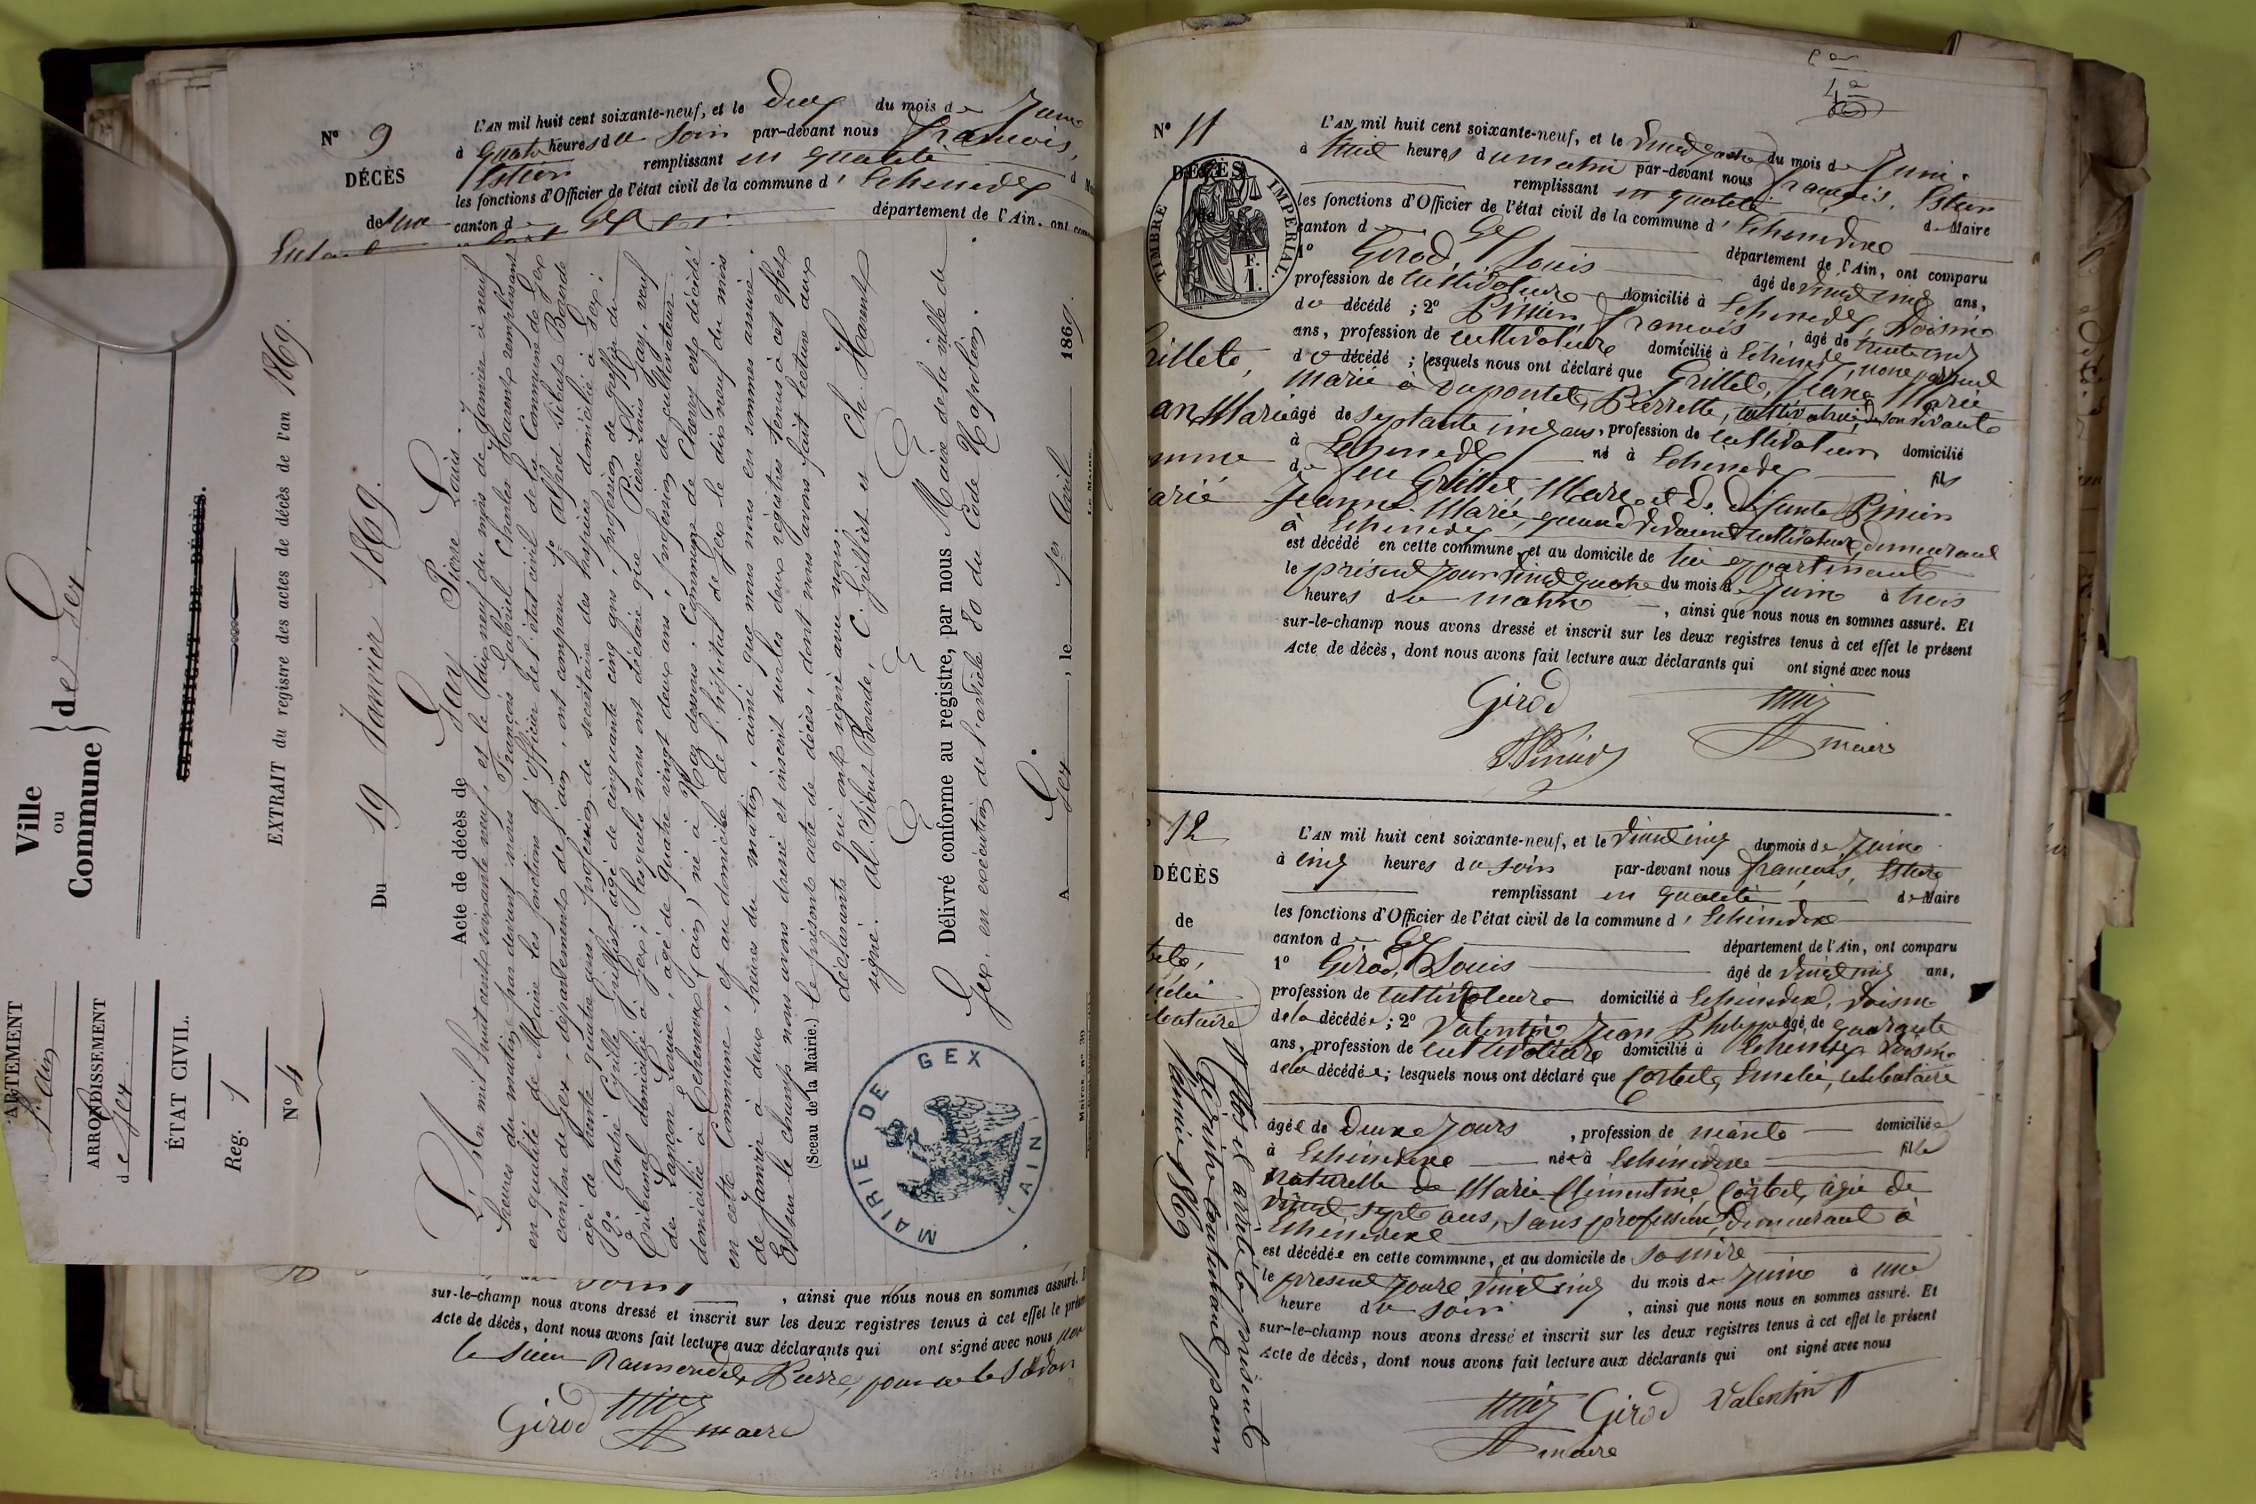 N° 9
DÉCÈS
de une
L'AN mil huit cent soixante-neuf, et le deux du mois de Juin
à quatre heures du soir par-devant nous François,
Estier remplissant en qualité d
les fonctions d'Officier de l'état civil de la commune d' Echenevex
canton d Gex département de l'Ain, ont
ARTEMENT
l'Ain
ARRONDISSEMENT
de Gex
ÉTAT CIVIL.
Reg. 1
N° 4
Ville
ou
Commune
} de Gex
CERTIFICAT DE DÉCÈS.
EXTRAIT du registre des actes de décès de l'an 1869.
Du 19 Janvier 1869.
Acte de décès de Gay Pierre Louis.
L'An mil huit cent soixante neuf, et le dix neuf du mois de Janvier à neuf
heures du matin, par devant nous François Gabriel Charles Harent remplissant
en qualité de Maire les fonctions d'officier de l'état civil de la Commune de Gex
canton de Gex, département de l'ain, ont comparu 1° Alfred Sibut Bourde
agé de trente quatre ans, profession de secrétaire des hospices domicilié à Gex;
2° André Cyrille Grillet agé de cinquante cinq ans, profession de greffier du
Tribunal domicilié à Gex; lesquels nous ont déclaré que Pierre Louis Gay, veuf
de Lançon Louise, âgé de quatre vingt deux ans, profession de cultivateur
domicilié à Echenevex (ain) né à Mez dessous, Commune de Chevry est décédé
en cette Commune, et au domicile de l'hôpital de Gex le dix neuf du mois
de Janvier à deux heures du matin, ainsi que nous nous en sommes assuré.
Et sur le champ nous avons dressé et inscrit sur les deux registres tenus à cet effet
(Sceau de la Mairie.) le présent acte de décès, dont nous avons fait lecture aux
déclarants qui ont signé avec nous.
signé: Al. Sibut Bourde, C. Grillet et Ch. Harent
Délivré conforme au registre, par nous Maire de la ville de
Gex, en exécution de l'article 80 du Code Napoléon.
A Gex, le 1er Avril 1869.
Le Maire,
MAIRIE DE GEX
(AIN)
, ainsi que nous nous en sommes assuré. E
sur-le-champ nous avons dressé et inscrit sur les deux registres tenus à cet effet le prése
Acte de décès, dont nous avons fait lecture aux déclarants qui ont signé avec nous
le sieur Pierre, pour ne le savoir
Girod
maire
N° 11
DÉCÈS
TIMBRE IMPÉRIAL.
F. 1.
L'AN mil huit cent soixante-neuf, et le vingt quatre du mois de Juin.
à huit heures du matin par-devant nous François, Estier
remplissant en qualité de Maire
les fonctions d'Officier de l'état civil de la commune d' Echenevex
canton d Gex département de l'Ain, ont comparu
1° Girod, Louis âgé de vingt cinq ans,
profession de cultivateur domicilié à Echenevex, voisin
du décédé ; 2° François âgé de trente cinq
ans, profession de cultivateur domicilié à Echenevex, non parent
du décédé ; lesquels nous ont déclaré que Grillet, Jean Marie
marié à Dupontet, Pierrette, cultivatrice, de son vivant
âgé de septante cinq ans, profession de cultivateur domicilié
à Echenevex né à Echenevex fils
de feu Grillet, Marc et de défunte
Jeanne Marie, quand vivaient cultivateurs, demeurant
à Echenevex
est décédé en cette commune, et au domicile de lui appartenant
le présent jour vingt quatre du mois de Juin à trois
heures du matin , ainsi que nous nous en sommes assuré. Et
sur-le-champ nous avons dressé et inscrit sur les deux registres tenus à cet effet le présent
Acte de décès, dont nous avons fait lecture aux déclarants qui ont signé avec nous
Girod
maire
12
DÉCÈS
de
L'AN mil huit cent soixante-neuf, et le vingt cinq du mois de Juin
à cinq heures du soir par-devant nous François, Estier
remplissant en qualité de Maire
les fonctions d'Officier de l'état civil de la commune d' Echenevex
canton d Gex département de l'Ain, ont comparu
1° Girod, Louis âgé de vingt cinq ans,
profession de cultivateur domicilié à Echenevex, voisin
de la décédée ; 2° Valentin Jean Philippe âgé de quarante
ans, profession de cultivateur domicilié à Echenevex voisin
de la décédée ; lesquels nous ont déclaré que Corbet, Emelie, célibataire
âgée de deux jours , profession de néante domiciliée
à Echenevex née à Echenevex fille
naturelle de Marie Clémentine Corbet, âgée de
vingt sept ans, sans profession, demeurant à
Echenevex
est décédée en cette commune, et au domicile de sa mère
le présent jour vingt cinq du mois de Juin à une
heure du soir , ainsi que nous nous en sommes assuré. Et
sur-le-champ nous avons dressé et inscrit sur les deux registres tenus à cet effet le présent
Acte de décès, dont nous avons fait lecture aux déclarants qui ont signé avec nous
Girod Valentin
maire